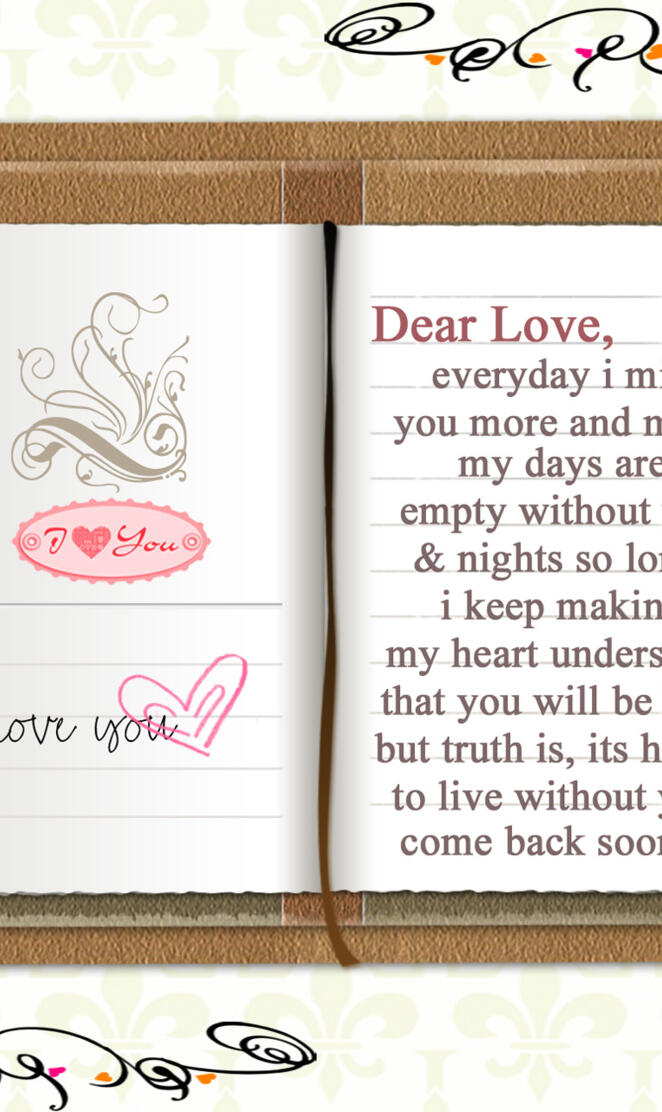 I You
ove you
Dear Love,
everyday i mi
you more and m
my days are
empty without
& nights so lo
i keep makin
my heart unders
that you will be
but truth is, its h
to live without y
come back soon